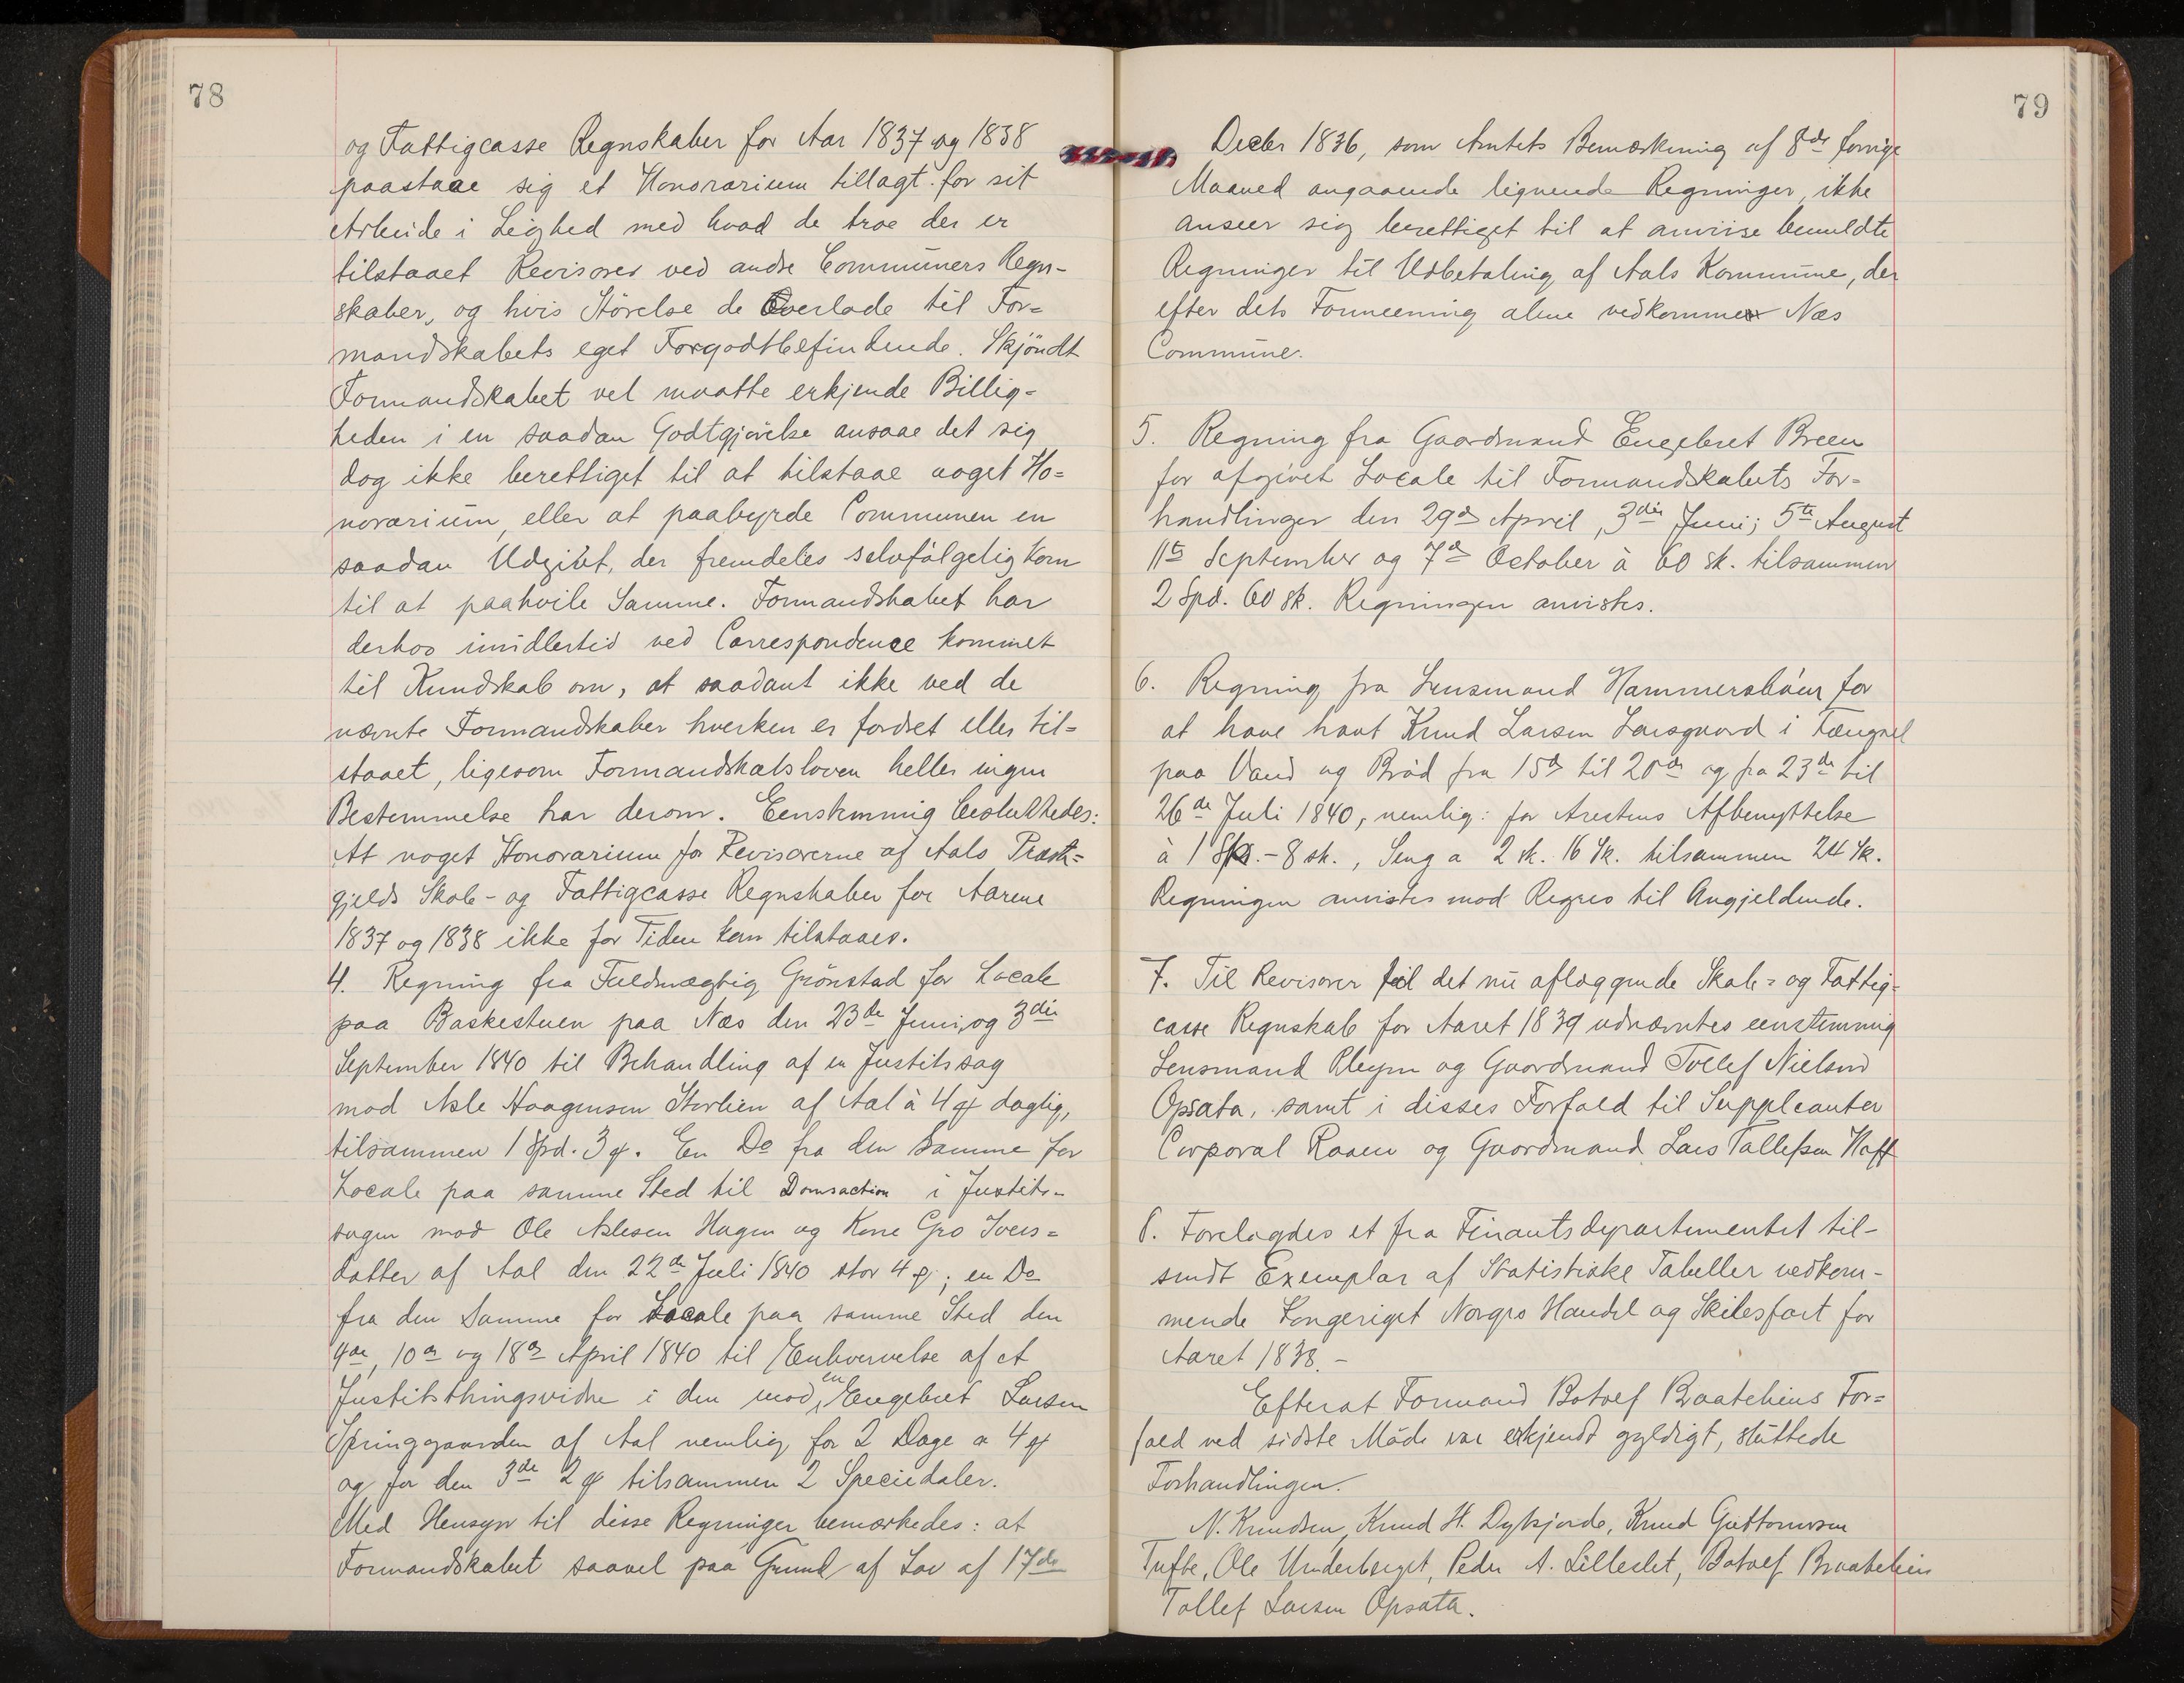 78
og Fattigcasse Regnskaber for Aar 1837 og 1838
paastaae sig et Honorarium tillagt for sit
Arbeide i Lighed med hvad de troe der er
tilstaaet Revisorer ved andre Communers Regn-
skaber, og hvis Störelse de Overlade til For=
mandskabets eget Forgodtbefindende. Skjöndt
Formandskabet vel maatte erkjende Billig=
heden i en saadan Godtgjörelse ansaae det sig
dog ikke berettiget til at tilstaae noget Ho=
norarium, eller at paabyrde Communen en
saadan Udgivt, der fremdeles selvfölgelig kom
til at paahvile Samme. Formandskabet har
derhos imidlertid ved Correspondence kommet
til Kundskab om, at saadant ikke ved de
nævnte Formandskaber hverken er fordret eller til=
staaet, ligesom Formandskabsloven heller ingen
Bestemmelse har derom. Eenstemmig besluttedes:
At noget Honorarium for Revisorerne af Aals Præste=
gjelds Skole- og Fattigcasse Regnskaber for Aarene
1837 og 1838 ikke for Tiden kan tilstaaes.
4. Regning fra Fuldmægtig Grönstad for Locale
paa Baskestuen paa Næs den 23de Juni, og 3die
September 1840 til Behandling af en Justitssag
mod Asle Haagensen Storlien af Aal à 4 ꝗ daglig,
tilsammen 1 Spd. 3 ꝗ. En Do fra den Samme for
Locale paa samme Sted til Domsaction i Justits-
sagen mod Ole Aslesen Hagen og Kone Gro Ivers=
datter af Aal den 22de Juli 1840 stor 4 ꝗ; en Do
fra den Samme for Locale paa samme Sted den
9de, 10de og 18de April 1840 til Erhvervelse af et
Justitsthingsvidne i den mod en Engebret Larsen
Springgaarden af Aal nemlig for 2 Dage a 4 ꝗ
og for den 3de 2 ꝗ tilsammen 2 Speciedaler.
Med Hensyn til disse Regninger bemærkedes: at
Formandskabet saavel paa Grund af Lov af 17de
79
Decbr 1836, som Amtets Bemærkning af 8de forrige
Maaned angaaende lignende Regninger, ikke
anseer sig berettiget til at anviise bemeldte
Regninger til Udbetaling af Aals Kommune, der
efter dets Formeening alene vedkommer Næs
Commune.
5. Regning fra Gaardmand Engebret Breen
for afgivet Locale til Formandskabets For=
handlinger den 29de April, 3die Juni; 5te August
11te September og 7de October à 60 sk. tilsammen
2 Spd. 60 sk. Regningen anvistes.
6. Regning fra Lensmand Hammersböen for
at have havt Knud Larsen Larsgaard i Fængsel
paa Vand og Bröd fra 15de til 20de og fra 23de til
26de Juli 1840, nemlig: for Arestens Afbenyttelse
à 1 Sk.-8 sk., Seng a 2 sk. 16 sk. tilsammen 24 sk.
Regningen anvistes mod Regres til Angjeldende.
7. Til Revisorer fol det nu aflæggende Skole= og Fattig=
casse Regnskab for Aaret 1839 udnævntes eenstemmig
Lensmand Pleym og Gaardmand Tollef Nielsen
Opsata, samt i disses Forfald til Suppleanter
Corporal Raaen og Gaardmand Lars Tollefsen Hoff
8. Forelagdes et fra Finantsdepartementet til-
sendt Exemplar af Statistiske Tabeller vedkom-
mende Kongeriget Norges Handel og Skibsfart for
Aaret 1838. -
Efterat Formand Botolf Braatehens For=
fald ved sidste Möde var erkjendt gyldigt, sluttede
Forhandlingen.
N. Knudsen, Knud H. Dyksjorde, Knud Guttormsen
Tufte, Ole Underberget, Peder A. Lilleslet, Botolf Braatehen
Tollef Larsen Opsata.